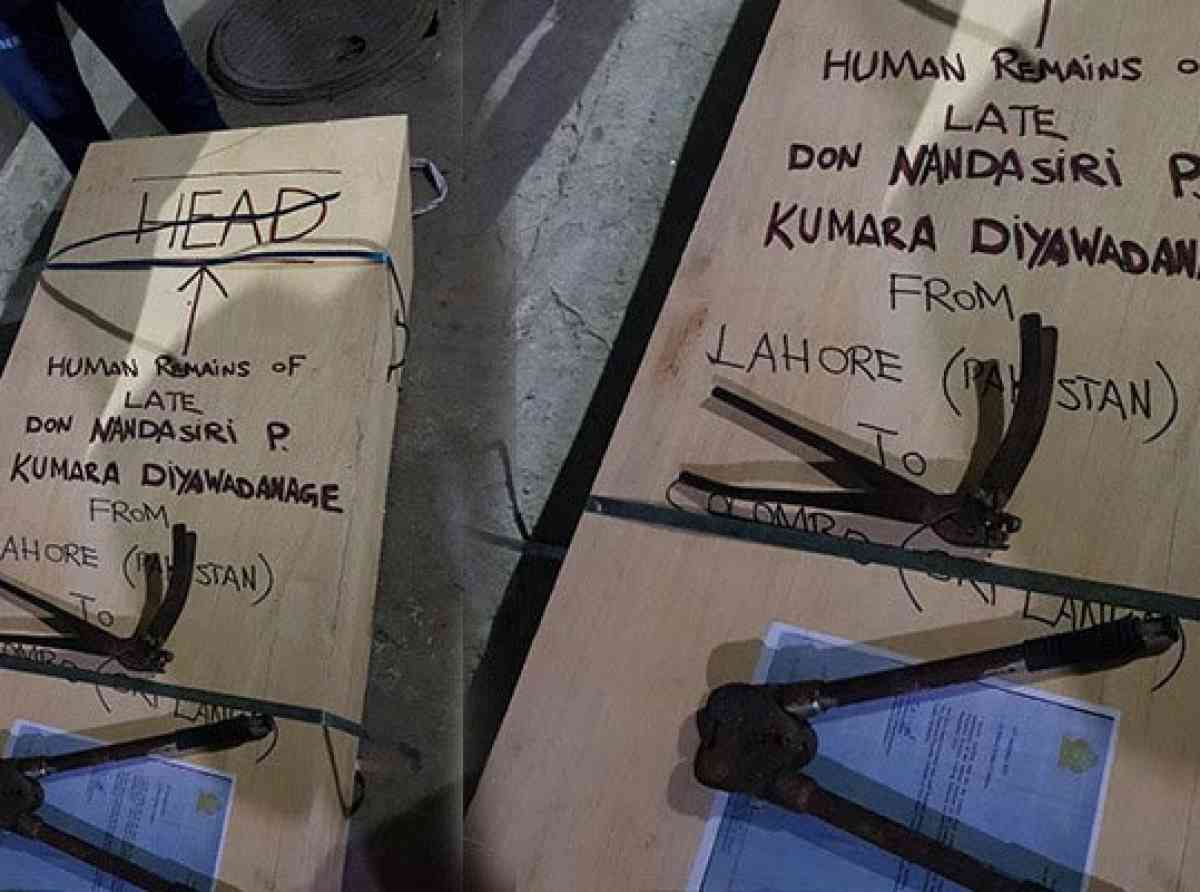 HEAD
HUMAN REMAINS OF
LATE
DON NANDASIRI P.
KUMARA DIYAWADANAGE
FROM
AHORE (PAKISTAN)
TO
HUMAN REMAINS O
LATE
DON NANDASIRI P.
KUMARA DIYAWADANA
FROM
LAHORE (PAKISTAN)
TO
COLOMBO (SRI LANK